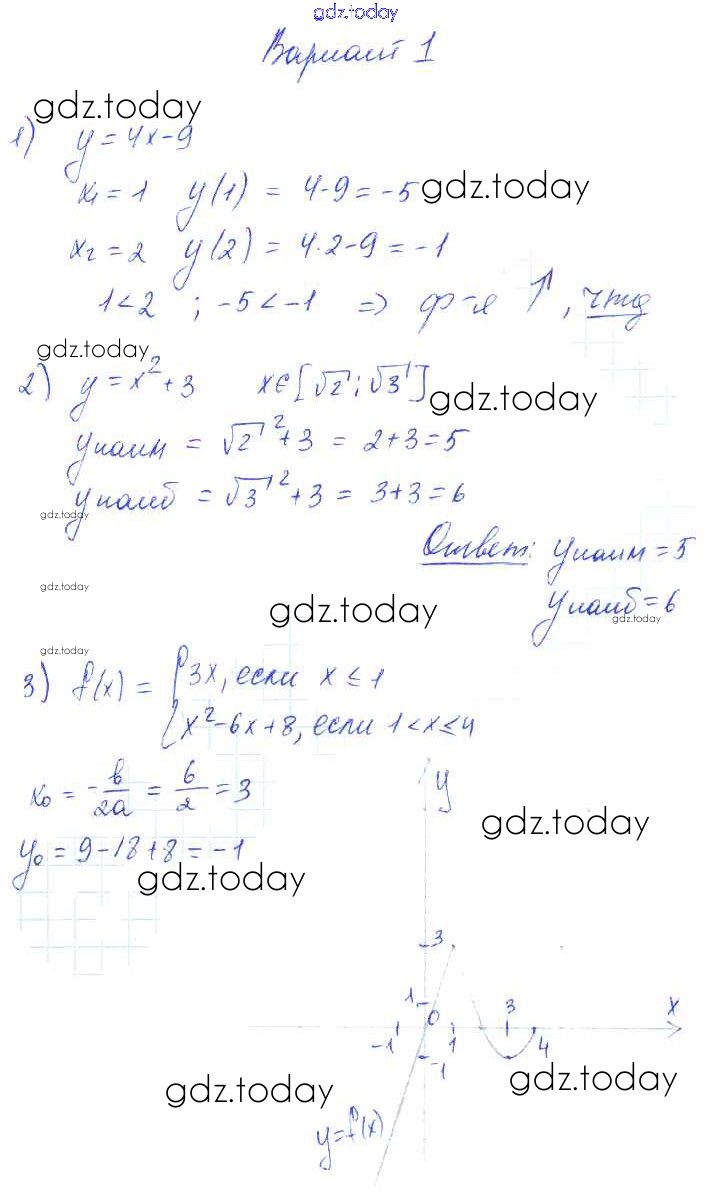 gdz.today
Вариант 1
gdz.today
1) y = 4x - 9
x₁ = 1 y(1) = 4 - 9 = -5 gdz.today
x₂ = 2 y(2) = 4·2 - 9 = -1
1 < 2 ; -5 < -1 => ф-я ↑, чтд
gdz.today
2) y = x² + 3 x ∈ [√2; √3] gdz.today
yнаим = √2² + 3 = 2 + 3 = 5
yнаиб = √3² + 3 = 3 + 3 = 6
gdz.today
Ответ: yнаим = 5
gdz.today
gdz.today yнаиб = 6
gdz.today
gdz.today
3) f(x) = { 3x, если x ≤ 1
x² - 6x + 8, если 1 < x ≤ 4
x₀ = -в/2a = 6/2 = 3
y
gdz.today
y₀ = 9 - 18 + 8 = -1
gdz.today
3
1 0 3 x
-1 1 4
-1
gdz.today gdz.today
y = f(x)